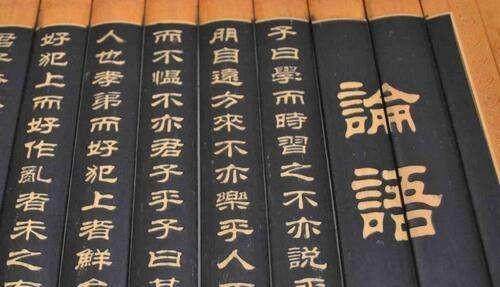 論語
子曰學而時習之不亦說乎
朋自遠方來不亦樂乎人不
而不慍不亦君子乎子曰其
人也孝弟而好犯上者鮮矣
好犯上而好作亂者未之有
君子